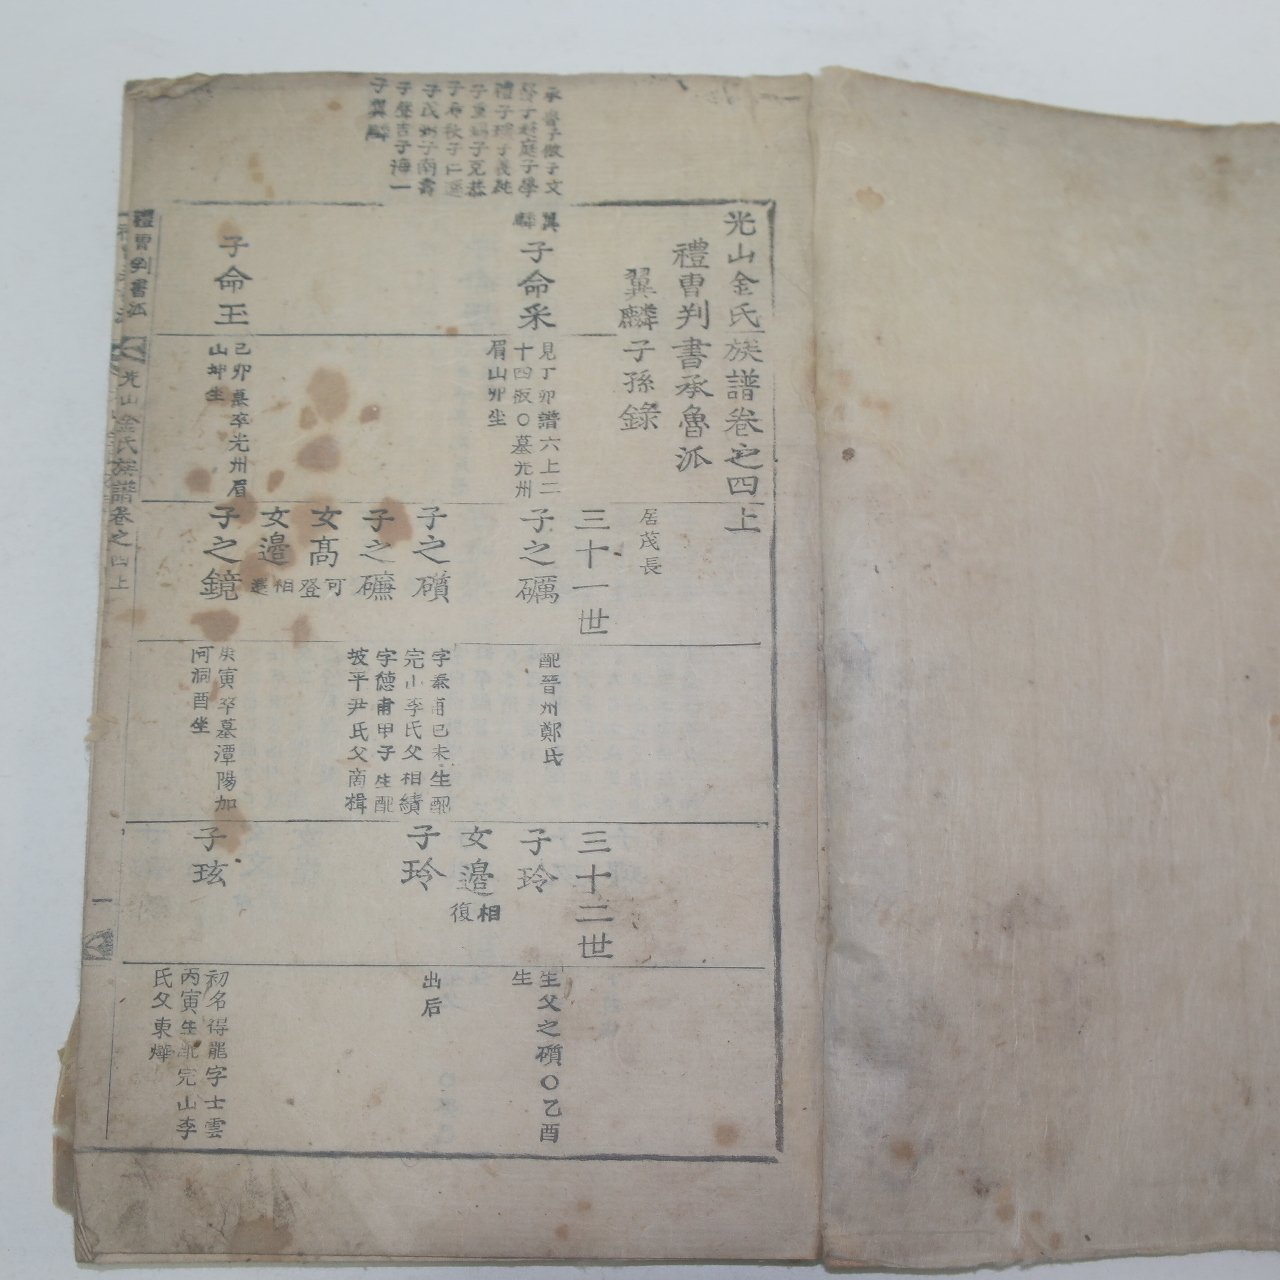 承魯子徵子文
子趨庭子學
禮子瑞子義
子克恭
子仁
子南壽
子聲吉子海一
子翼麟
光山金氏族譜卷之四上
禮曹判書承魯派
翼麟子孫錄
翼麟
子命采
子命玉
見丁卯譜六上二
十四板〇墓光州
眉山卯坐
己卯 卒光州眉
山坤坐
居茂長
三十一世
子之礪
子之礩
子之礁
女高可登
女邊相
子之鏡
配晉州鄭氏
字泰甫己未生配
完山李氏父相績
字德甫甲子生配
坡平尹氏父商楫
庚寅卒墓潭陽加
阿洞酉坐
三十二世
子玲
女邊相復
子玲
子玹
生父之礩〇乙酉
生
出后
初名得龍字士雲
丙寅生配完山李
氏父東燁
禮曹判書派
光山金氏族譜卷之四上
一